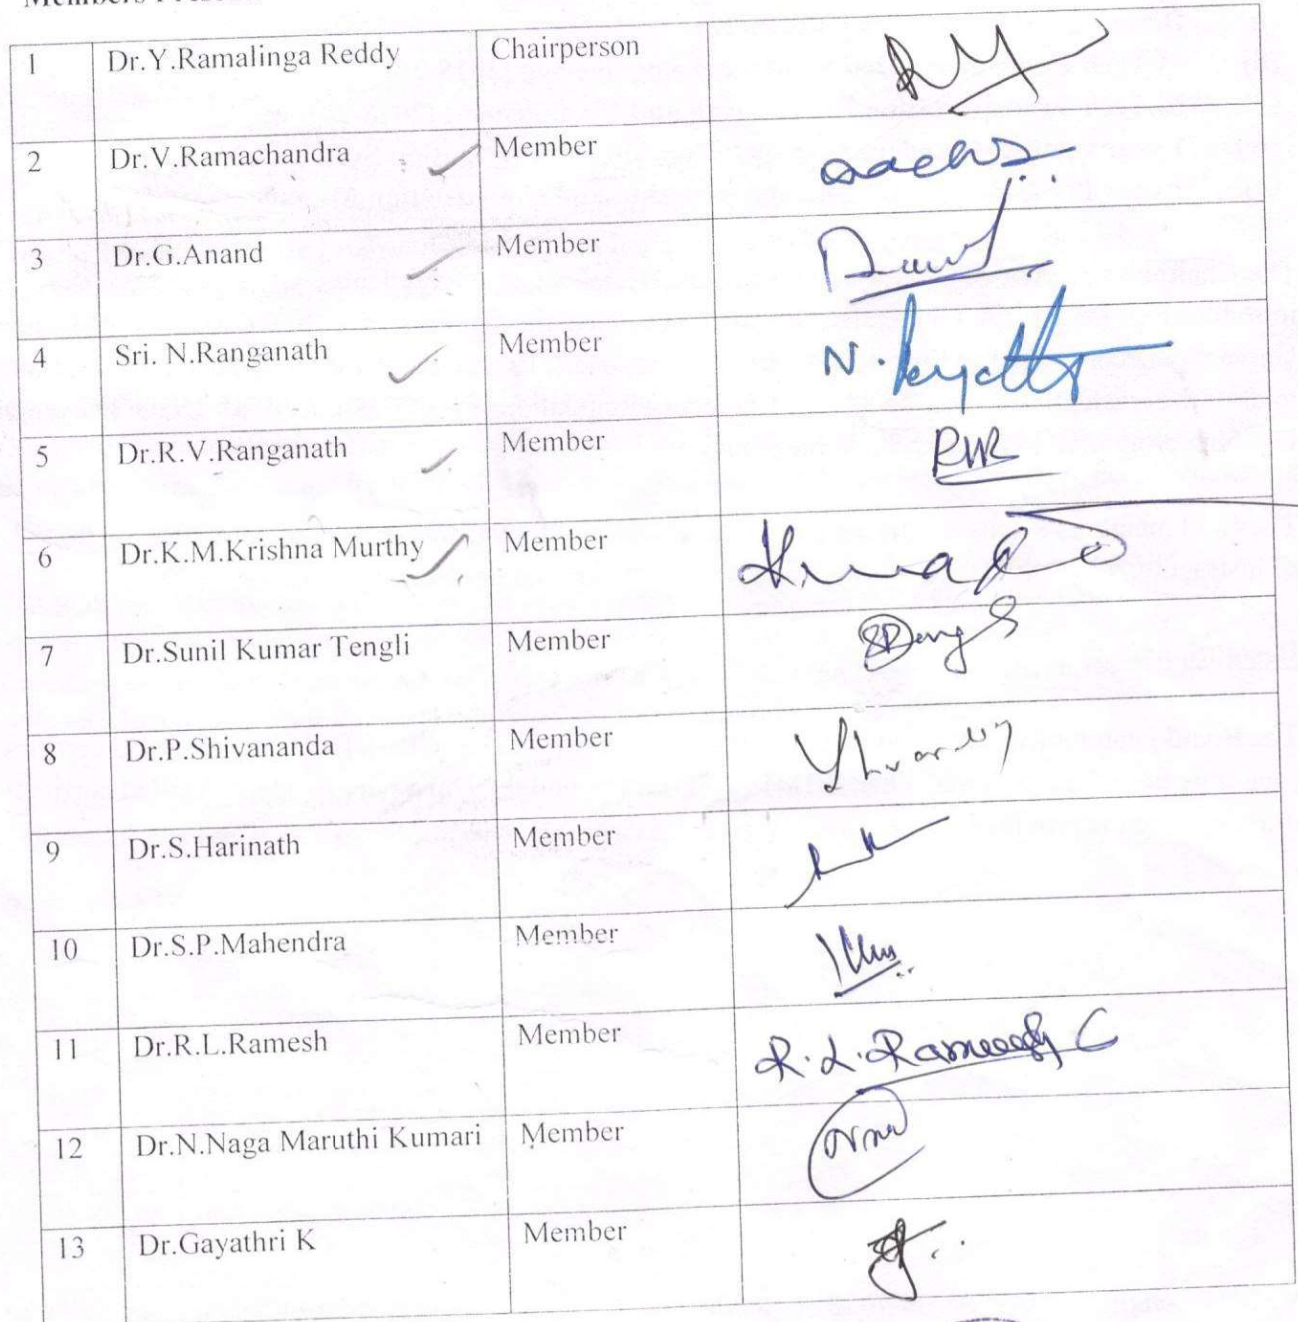 Members
1 Dr.Y.Ramalinga Reddy Chairperson
2 Dr.V.Ramachandra Member
3 Dr.G.Anand Member
4 Sri. N.Ranganath Member N.
5 Dr.R.V.Ranganath Member RVR
6 Dr.K.M.Krishna Murthy Member
7 Dr.Sunil Kumar Tengli Member
8 Dr.P.Shivananda Member
9 Dr.S.Harinath Member
10 Dr.S.P.Mahendra Member
11 Dr.R.L.Ramesh Member R.L.Ramesh C
12 Dr.N.Naga Maruthi Kumari Member
13 Dr.Gayathri K Member